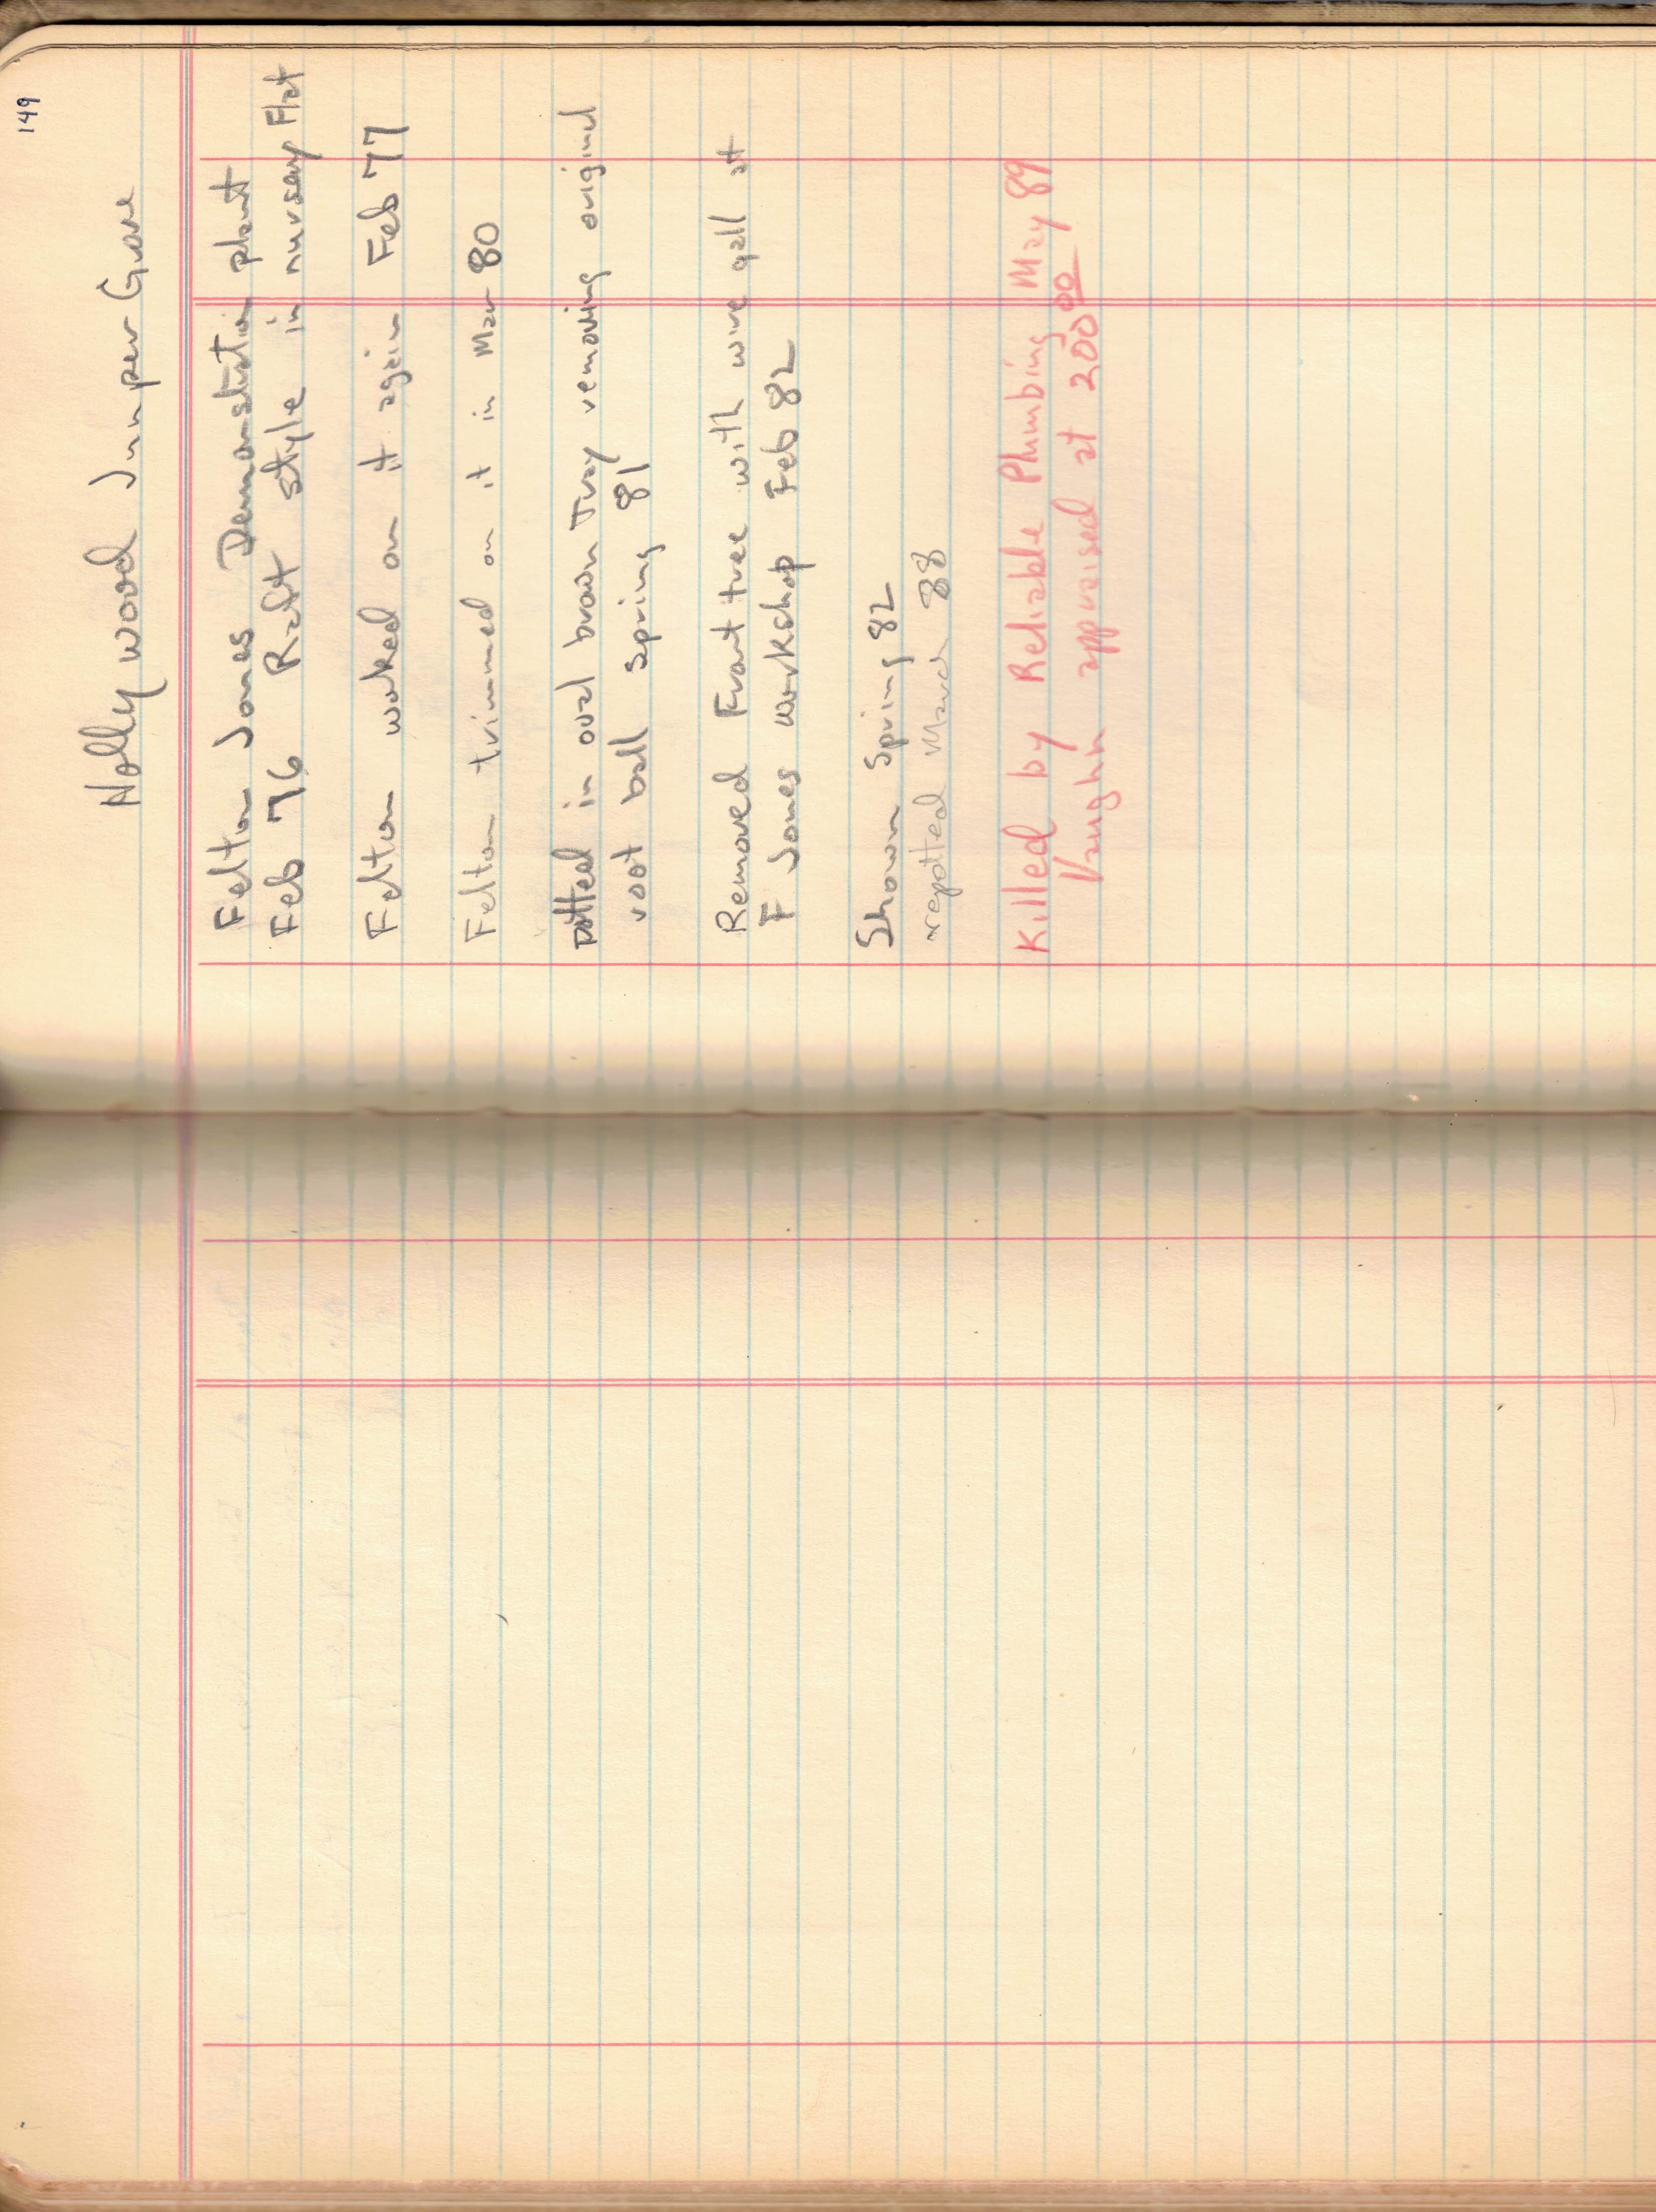 149
Hollywood Juniper Grove
Felton Jones Demonstration plant
Feb 76 Raft style in nursery Flat
Felton worked on it again Feb 77
Felton trimmed on it in Mar 80
potted in oval brown Tray removing original
root ball spring 81
Removed Front tree with wire gall at
F Jones workshop Feb 82
Shown Spring 82
repotted March 88
Killed by Reliable Plumbing May 89
Vaughn appraised at 200 00